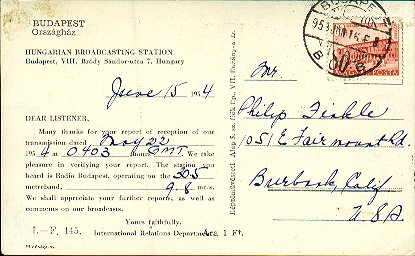 BUDAPEST
Országház
HUNGARIAN BROADCASTING STATION
Budapest, VIII. Bródy Sándor-utca 7, Hungary
June 15 1954
DEAR LISTENER,
Many thanks for your report of reception of our
transmission dated May 22
1954 at 0403 hours GMT. We take
pleasure in verifying your report. The station you
heard is Radio Budapest, operating on the 30.5
meterband, 9.8 mc/s.
We shall appreciate your further reports, as well as
comments on our broadcasts.
Yours faithfully,
International Relations Department
I.—F. 145.
Ára 1 Ft.
Mr.
Philip
1051 E Fairmount Rd.
Burbank, Calif
USA
BUDAPEST
POSTA